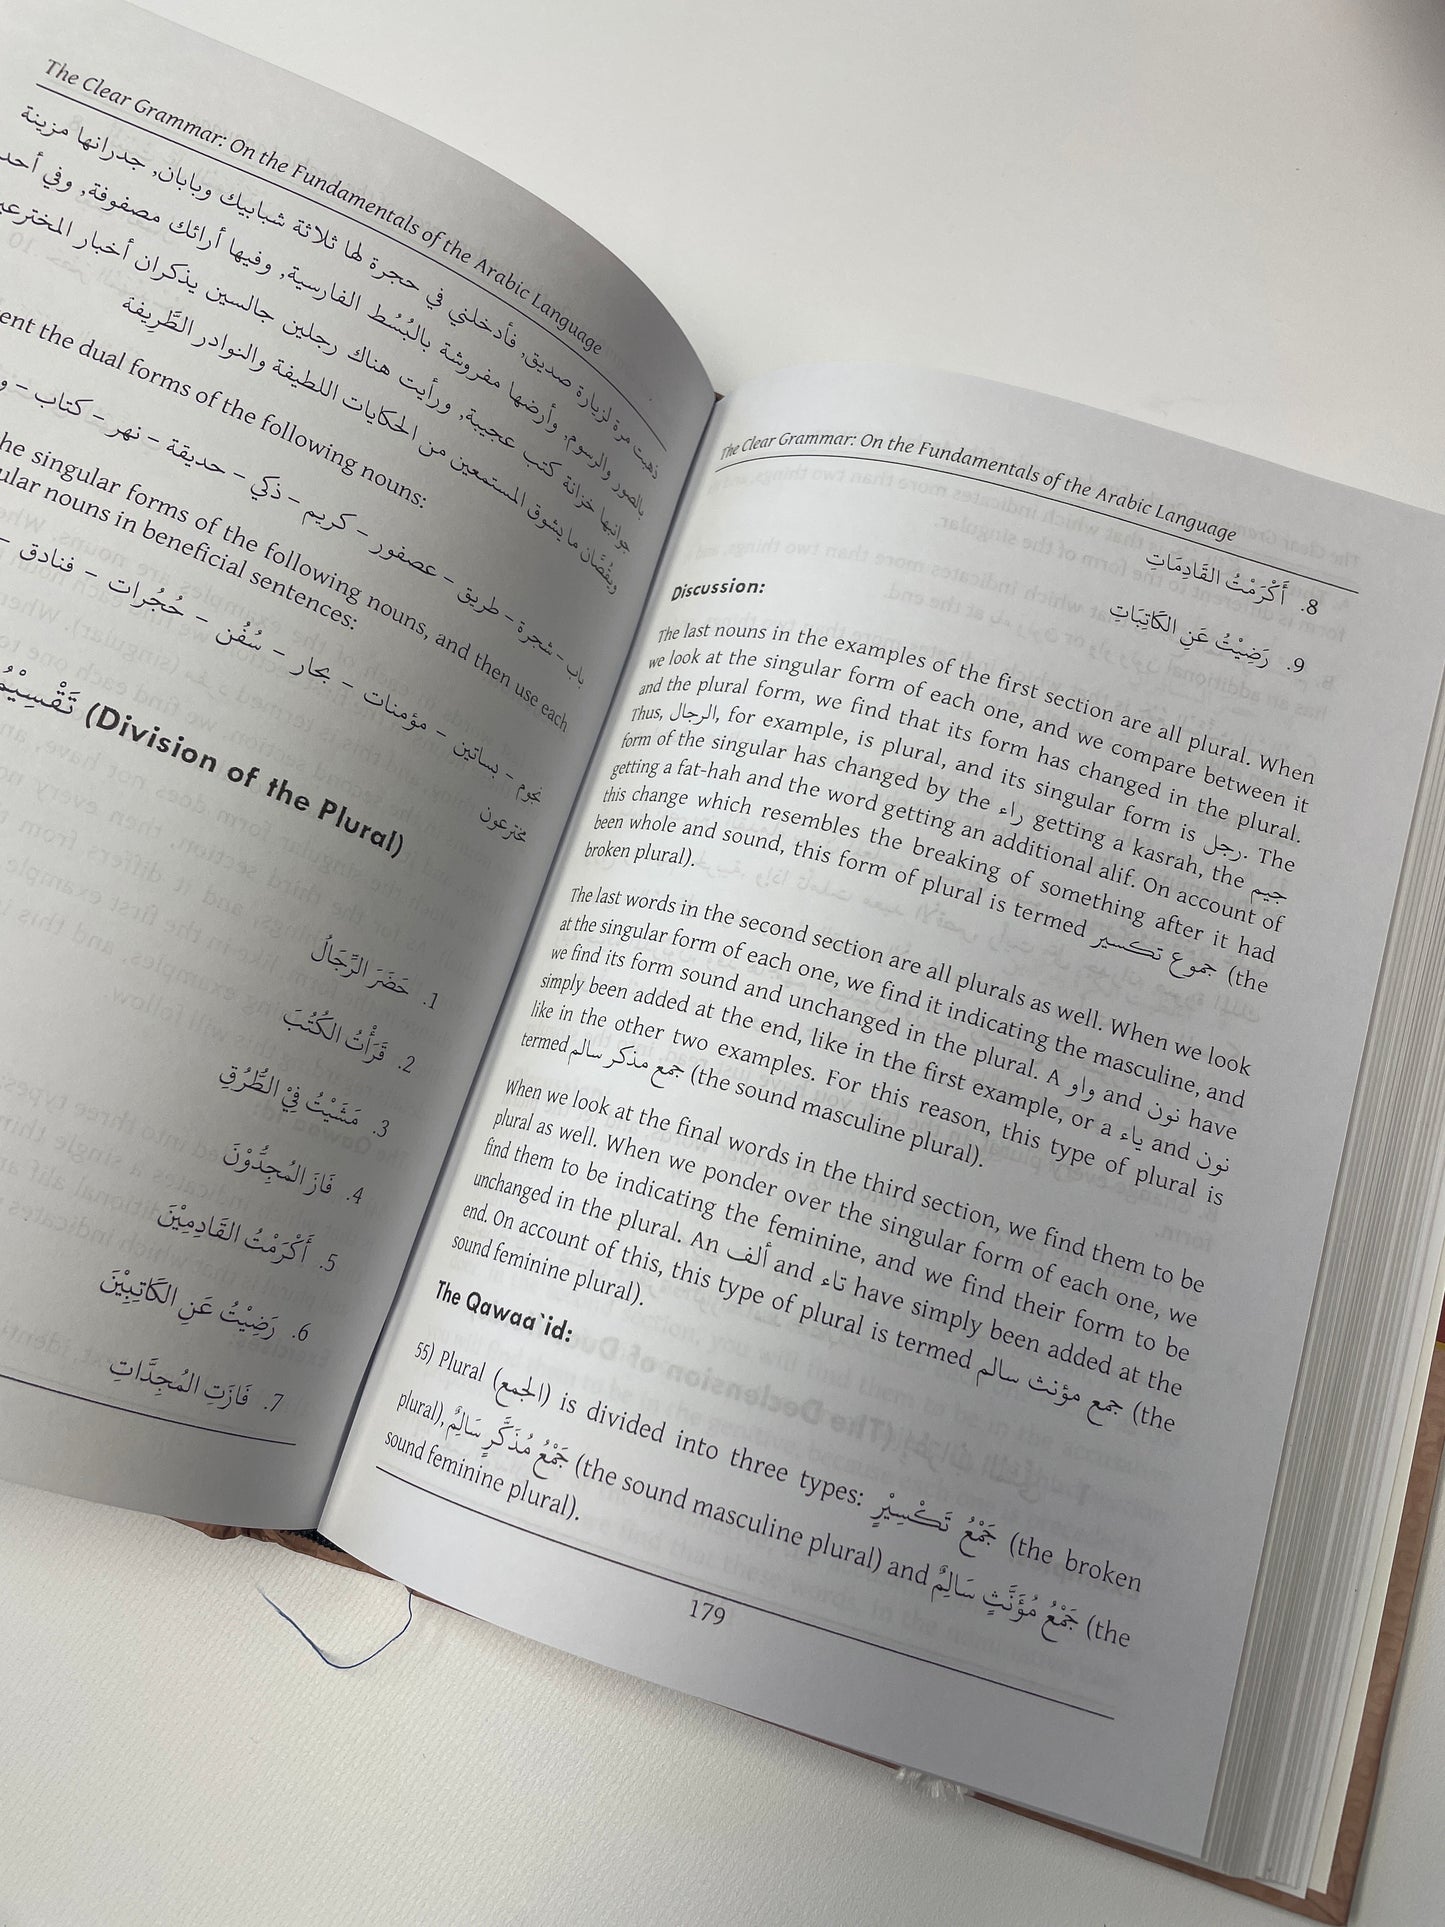 The Clear Grammar: On the Fundamentals of the Arabic Language
ذهبت مرة لزيارة صديق, فأدخلني في حجرة لها ثلاثة شبابيك وبابان, جدرانها مزينة
بالصور والرسوم, وأرضها مفروشة بالبُسُط الفارسية, وفيها أرائك مصفوفة, وفي
جوانبها خزانة كتب عجيبة, ورأيت هناك رجلين جالسين يذكران أخبار
ويقُصَّان ما يشوق المستمعين من الحكايات اللطيفة والنوادر الطَّرِيفة
the dual forms of the following nouns:
باب – شجرة – طريق – عصفور – كريم – ذكي – حديقة – نهر – كتاب –
the singular forms of the following nouns, and then use each
nouns in beneficial sentences:
نجوم – بساتين – مؤمنات – بحار – سُفُن – حُجُرات – فنادق –
مخترعون
(Division of the Plural)
1. حَضَرَ الرَّجَالُ
2. قَرَأْتُ الكُتُبَ
3. مَشَيْتُ فِيْ الطُّرُقِ
4. فَازَ المُجِدُّوْنَ
5. أَكْرَمْتُ القَادِمِيْنَ
6. رَضِيْتُ عَنِ الكَاتِبِيْنَ
7. فَازَتِ المُجِدَّاتِ
The Clear Grammar: On the Fundamentals of the Arabic Language
8. أَكْرَمْتُ القَادِمَاتِ
9. رَضِيْتُ عَنِ الكَاتِبَاتِ
Discussion:
The last nouns in the examples of the first section are all plural. When
we look at the singular form of each one, and we compare between it
and the plural form, we find that its form has changed in the plural.
Thus, الرجال, for example, is plural, and its singular form is رجل. The
form of the singular has changed by the راء getting a kasrah, the جيم
getting a fat-hah and the word getting an additional alif. On account of
this change which resembles the breaking of something after it had
been whole and sound, this form of plural is termed جموع تكسير (the
broken plural).
The last words in the second section are all plurals as well. When we look
at the singular form of each one, we find it indicating the masculine, and
we find its form sound and unchanged in the plural. A واو and نون have
simply been added at the end, like in the first example, or a ياء and نون
like in the other two examples. For this reason, this type of plural is
termed جمع مذكر سالم (the sound masculine plural).
When we look at the final words in the third section, we find them to be
plural as well. When we ponder over the singular form of each one, we
find them to be indicating the feminine, and we find their form to be
unchanged in the plural. An ألف and تاء have simply been added at the
end. On account of this, this type of plural is termed جمع مؤنث سالم (the
sound feminine plural).
The Qawaa`id:
55) Plural (الجمع) is divided into three types: جَمْعُ تَكْسِيْرٍ (the broken
plural), جَمْعُ مُذَكَّرٍ سَالِمٌ (the sound masculine plural) and جَمْعُ مُؤَنَّثٍ سَالِمٌ (the
sound feminine plural).
179